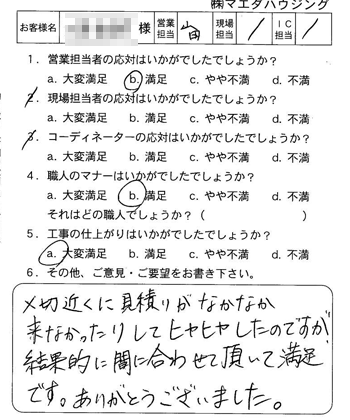 ㈱マエダハウジング
お客様名 様 営業担当 現場担当 / IC担当 /
1. 営業担当者の応対はいかがでしたでしょうか？
a. 大変満足 b. 満足 c. やや不満 d. 不満
2. 現場担当者の応対はいかがでしたでしょうか？
a. 大変満足 b. 満足 c. やや不満 d. 不満
3. コーディネーターの応対はいかがでしたでしょうか？
a. 大変満足 b. 満足 c. やや不満 d. 不満
4. 職人のマナーはいかがでしたでしょうか？
a. 大変満足 b. 満足 c. やや不満 d. 不満
それはどの職人でしょうか？（ ）
5. 工事の仕上がりはいかがでしたでしょうか？
a. 大変満足 b. 満足 c. やや不満 d. 不満
6. その他、ご意見・ご要望をお書き下さい。
〆切近くに見積りがなかなか
来なかったりしてヒヤヒヤしたのですが
結果的に間に合わせて頂いて満足
です。ありがとうございました。